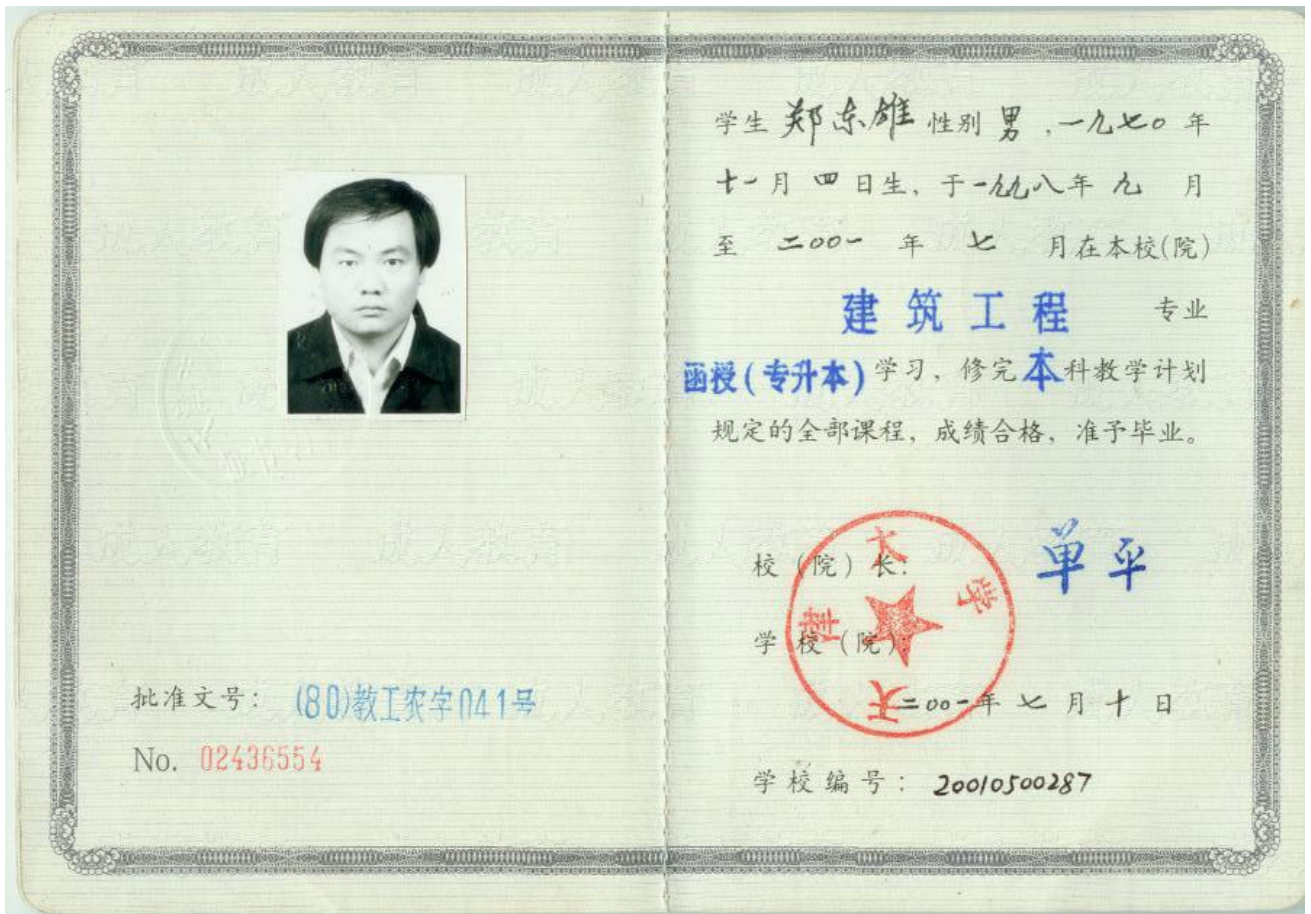 批准文号：(80)教工农字041号
No. 02436554
学生 郑东雄 性别 男，一九七〇年
十一月 四 日生，于一九九八年 九 月
至 二〇〇一 年 七 月在本校(院)
建筑工程 专业
函授(专升本)学习，修完本科教学计划
规定的全部课程，成绩合格，准予毕业。
校（院）长： 单平
学校（院）：
天津大学
二〇〇一年 七 月 十 日
学校编号：20010500287
成人教育